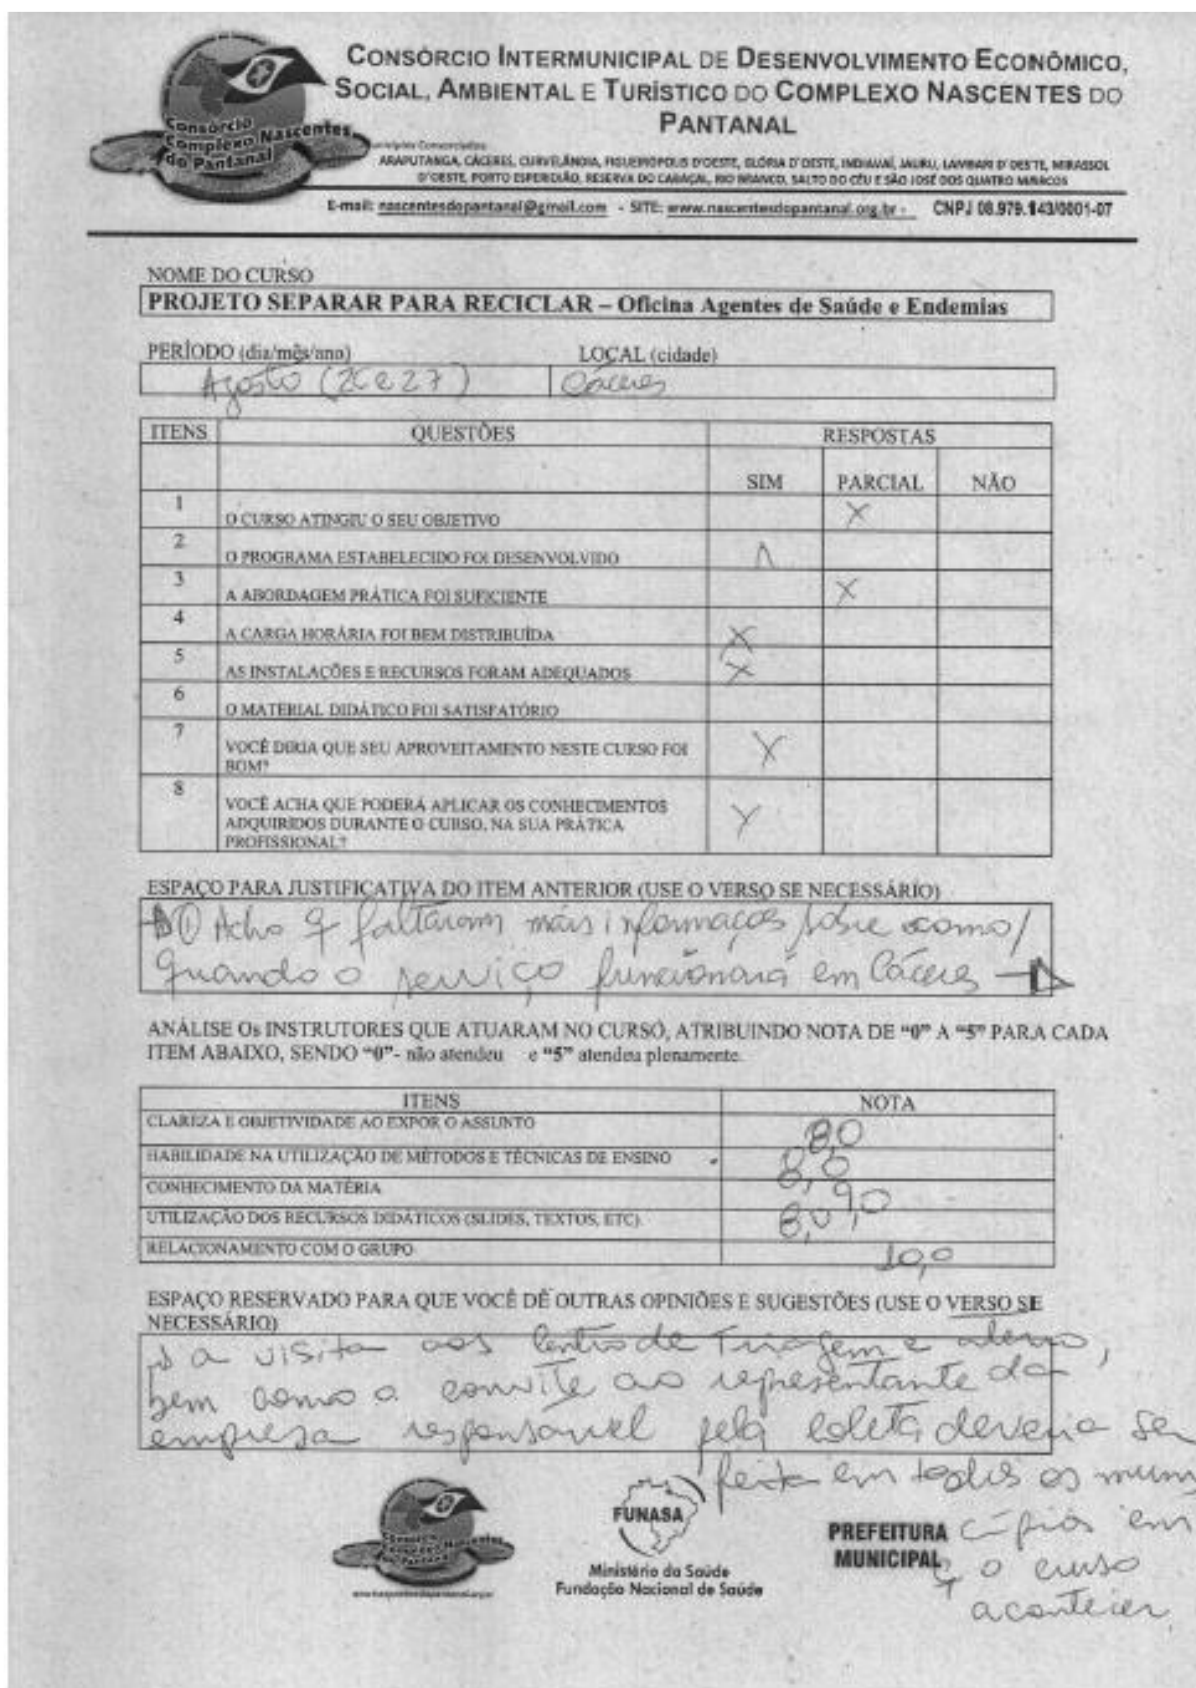 CONSÓRCIO INTERMUNICIPAL DE DESENVOLVIMENTO ECONÔMICO,
SOCIAL, AMBIENTAL E TURÍSTICO DO COMPLEXO NASCENTES DO
PANTANAL
Consórcio
Complexo Nascentes
do Pantanal
Municípios Consorciados:
ARAPUTANGA, CÁCERES, CURVELÂNDIA, FIGUEIRÓPOLIS D'OESTE, GLÓRIA D'OESTE, INDIAVAÍ, JAURU, LAMBARI D'OESTE, MIRASSOL
D'OESTE, PORTO ESPERIDIÃO, RESERVA DO CABAÇAL, RIO BRANCO, SALTO DO CÉU E SÃO JOSÉ DOS QUATRO MARCOS
E-mail: nascentesdopantanal@gmail.com - SITE: www.nascentesdopantanal.org.br - CNPJ 08.979.143/0001-07
NOME DO CURSO
PROJETO SEPARAR PARA RECICLAR – Oficina Agentes de Saúde e Endemias
PERÍODO (dia/mês/ano) LOCAL (cidade)
Agosto (26 e 27) Cáceres
ITENS QUESTÕES RESPOSTAS
SIM PARCIAL NÃO
1 O CURSO ATINGIU O SEU OBJETIVO X
2 O PROGRAMA ESTABELECIDO FOI DESENVOLVIDO
3 A ABORDAGEM PRÁTICA FOI SUFICIENTE X
4 A CARGA HORÁRIA FOI BEM DISTRIBUÍDA X
5 AS INSTALAÇÕES E RECURSOS FORAM ADEQUADOS X
6 O MATERIAL DIDÁTICO FOI SATISFATÓRIO
7 VOCÊ DIRIA QUE SEU APROVEITAMENTO NESTE CURSO FOI
BOM? X
8 VOCÊ ACHA QUE PODERÁ APLICAR OS CONHECIMENTOS
ADQUIRIDOS DURANTE O CURSO, NA SUA PRÁTICA
PROFISSIONAL? X
ESPAÇO PARA JUSTIFICATIVA DO ITEM ANTERIOR (USE O VERSO SE NECESSÁRIO)
① Acho q faltaram mais informações sobre como/
quando o serviço funcionará em Cáceres →
ANÁLISE Os INSTRUTORES QUE ATUARAM NO CURSO, ATRIBUINDO NOTA DE "0" A "5" PARA CADA
ITEM ABAIXO, SENDO "0"- não atendeu e "5" atendeu plenamente.
ITENS NOTA
CLAREZA E OBJETIVIDADE AO EXPOR O ASSUNTO 8,0
HABILIDADE NA UTILIZAÇÃO DE MÉTODOS E TÉCNICAS DE ENSINO 8,0
CONHECIMENTO DA MATÉRIA 9,0
UTILIZAÇÃO DOS RECURSOS DIDÁTICOS (SLIDES, TEXTOS, ETC). 8,0
RELACIONAMENTO COM O GRUPO 10,0
ESPAÇO RESERVADO PARA QUE VOCÊ DÊ OUTRAS OPINIÕES E SUGESTÕES (USE O VERSO SE
NECESSÁRIO)
a visita aos Centro de Triagem e aterro,
bem como o convite ao representante da
empresa responsavel pela coleta deveria ser
feita em todos os muni
cípios em
q o curso
acontecer
FUNASA
Ministério da Saúde
Fundação Nacional de Saúde
PREFEITURA
MUNICIPAL